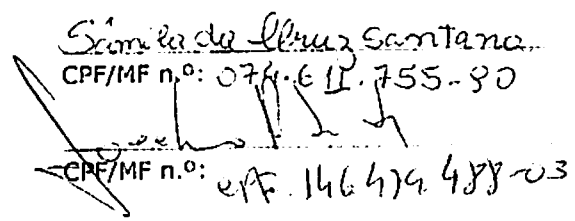 Sâmila da Cruz Santana
CPF/MF n.º: 074.611.755-90
CPF/MF n.º: CPF. 146.474.488-03